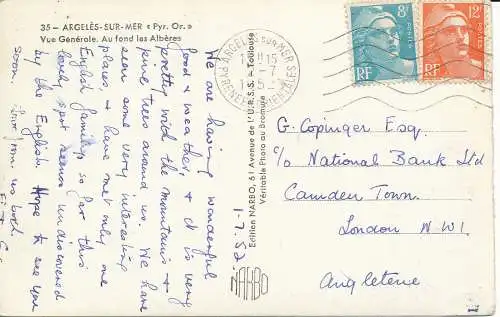 35 - ARGELÈS-SUR-MER « Pyr. Or. »
Vue Générale. Au fond les Albères
We are having wonderful
food & weather, & it is very
pretty with the mountains &
pine trees around us. We have
seen some very interesting
places, & have met only one
English family, so far this
lovely spot seems undiscovered
by the English. Hope to see you
soon. Love from us both.
1-7-52.
Edition NARBO, 61 Avenue de l'U.R.S.S. - Toulouse
Véritable Photo au Bromure
NARBO
ARGELES SUR MER
PYRENEES ORIENTALES
15
-7
8F
POSTES
RF
12F
POSTES
RF
G. Copinger Esq.
c/o National Bank Ltd
Camden Town.
London N.W.1.
Angleterre